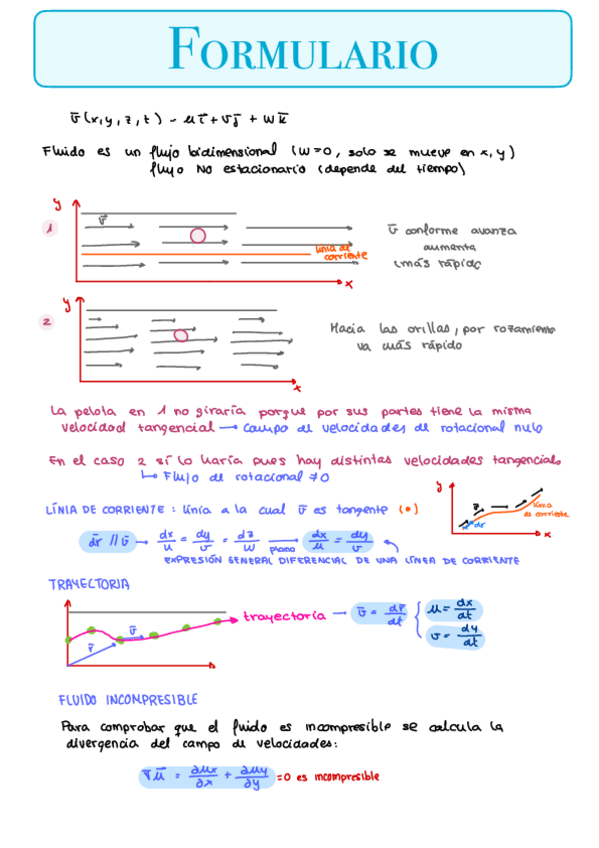 FORMULARIO
v̄(x,y,z,t) - u ī + v j̄ + w k̄
Fluido es un flujo bidimensional (w=0, solo se mueve en x,y)
flujo NO estacionario (depende del tiempo)
y
1
v̄
línea de
corriente
x
v̄ conforme avanza
aumenta
(más rápido
y
2
x
Hacia las orillas, por rozamiento
va más rápido
La pelota en 1 no giraría porque por sus partes tiene la misma
velocidad tangencial → campo de velocidades de rotacional nulo
En el caso 2 sí lo haría pues hay distintas velocidades tangenciales
↳ Flujo de rotacional ≠0
LÍNIA DE CORRIENTE : línia a la cual v̄ es tangente (•)
y
v̄
línia
de corriente
dr
x
d̄r // v̄ → dx/u = dy/v = dz/w plano → dx/u = dy/v
EXPRESIÓN GENERAL DIFERENCIAL DE UNA LÍNEA DE CORRIENTE
TRAYECTORIA
r̄
v̄
trayectoria → v̄ = dr̄/dt { u = dx/dt
v = dy/dt
FLUIDO INCOMPRESIBLE
Para comprobar que el fluido es incompresible se calcula la
divergencia del campo de velocidades:
∇ū = ∂ux/∂x + ∂uy/∂y =0 es incompresible